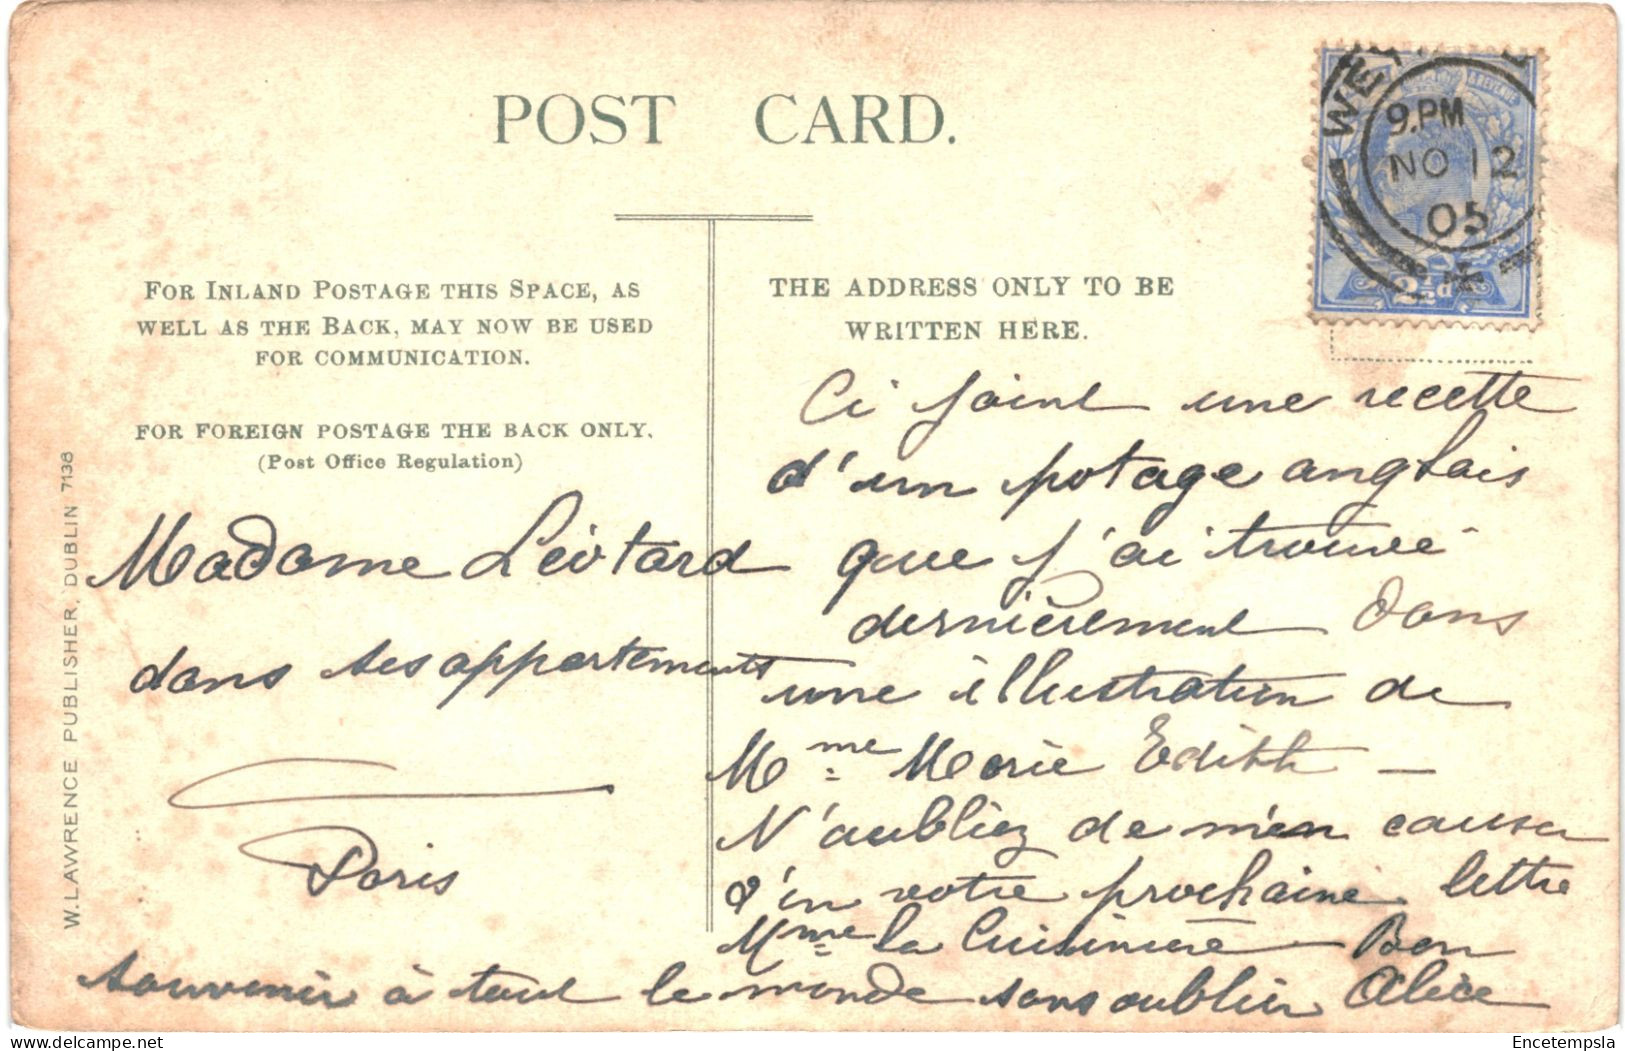 POST CARD.
WE
9.PM
NO 12
05
2½d
FOR INLAND POSTAGE THIS SPACE, AS
WELL AS THE BACK, MAY NOW BE USED
FOR COMMUNICATION.
FOR FOREIGN POSTAGE THE BACK ONLY.
(Post Office Regulation)
THE ADDRESS ONLY TO BE
WRITTEN HERE.
W. LAWRENCE PUBLISHER, DUBLIN 7138
Madame Léotard
dans ses appartements
Paris
Ci joint une recette
d'un potage anglais
que j'ai trouvé
dernièrement dans
une illustration de
Mme Marie Edith —
N'oubliez de m'en causer
d'in votre prochaine lettre
Mme la Cuisinière Bon
souvenir à tout le monde sans oublier Alice
Encetempsla